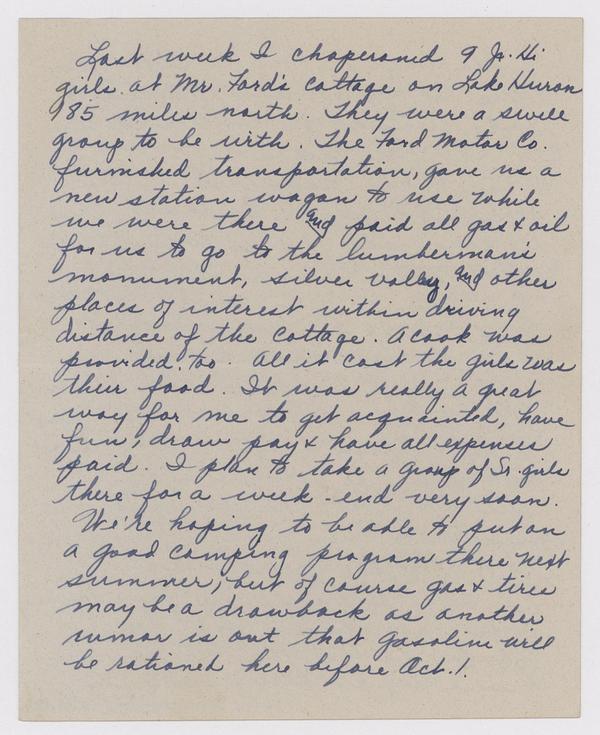 Last week I chaperoned 9 Jr. Hi
girls at Mr. Ford's cottage on Lake Huron
185 miles north. They were a swell
group to be with. The Ford Motor Co.
furnished transportation, gave us a
new station wagon to use while
we were there and paid all gas & oil
for us to go to the lumberman's
monument, silver valley, and other
places of interest within driving
distance of the cottage. A cook was
provided, too. All it cost the girls was
their food. It was really a great
way for me to get acquainted, have
fun, draw pay & have all expenses
paid. I plan to take a group of Sr. girls
there for a week-end very soon.
We're hoping to be able to put on
a good camping program there next
summer, but of course gas & tires
may be a drawback as another
rumor is out that gasoline will
be rationed here before Oct. 1.